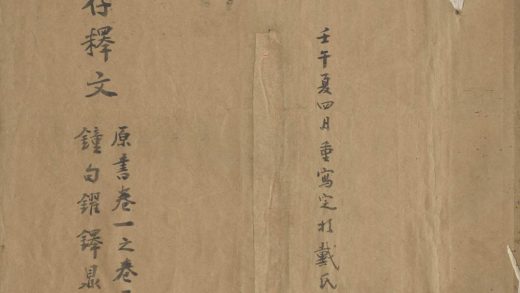 壬午夏四月重寫定於戴氏
存釋文
原書卷一之卷
鐘句鑃鐸鼎